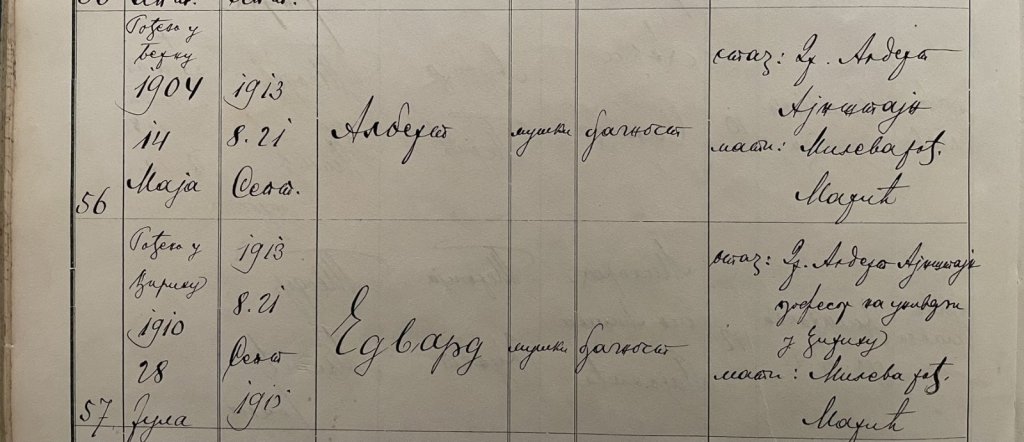 Рођено у
Берну
1904
14
Маја
1913
8. 21
Септ.
Алберт
мушки
брачност
отац: Др. Алберт
Ајнштајн
мати: Милева рођ.
Марић
56
Рођено у
Цириху
1910
28
Јула
1913
8. 21
Септ
1913
Едвард
мушки
брачност
отац: Др. Алберт Ајнштајн
професор на универзи
у Цириху
мати: Милева рођ.
Марић
57